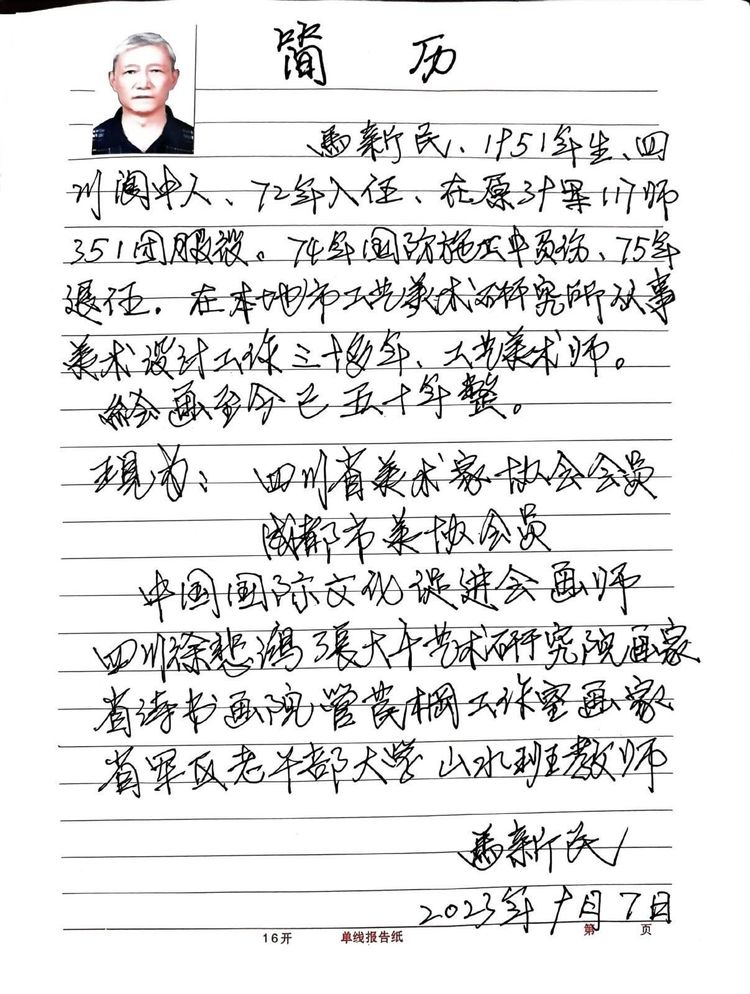 简 历
马新民、1951年生、四
川阆中人、72年入伍、在原39军117师
351团服役。74年国防施工中负伤、75年
退伍。在本地市工艺美术研究所从事
美术设计工作三十多年、工艺美术师。
绘画至今已五十年整。
现为：四川省美术家协会会员
成都市美协会员
中国国际文化促进会画师
四川徐悲鸿張大千艺术研究院画家
省诗书画院管苠棡工作室画家
省军区老干部大学山水班教师
马新民
2023年十月7日
16开 单线报告纸 第 页